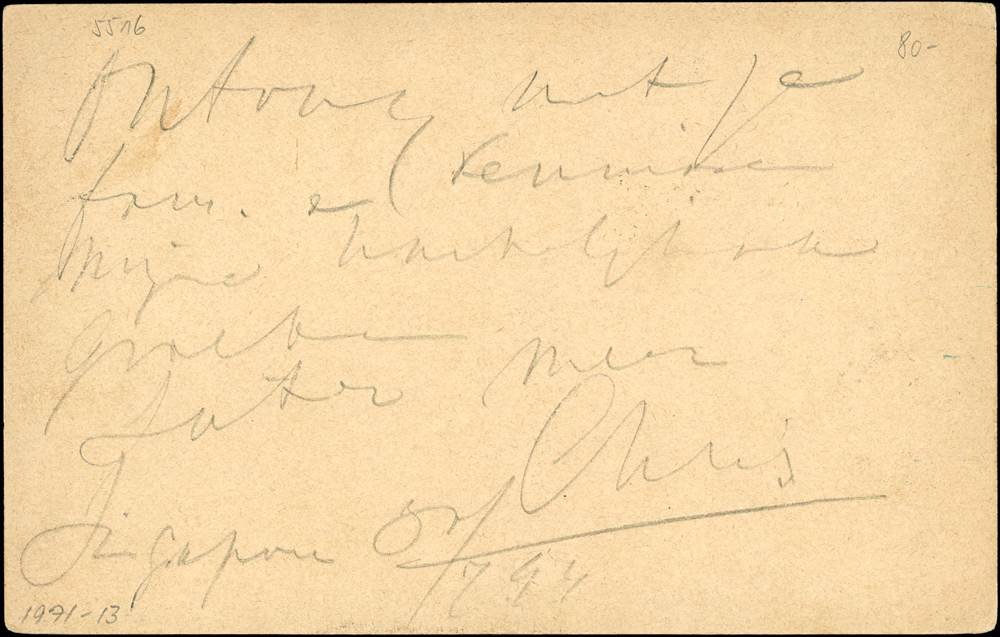 5516
80-
Ontvang met je
fam. en Kennissen
mijne hartelijkste
groeten
Later meer
Chris
Singapore
1991-13